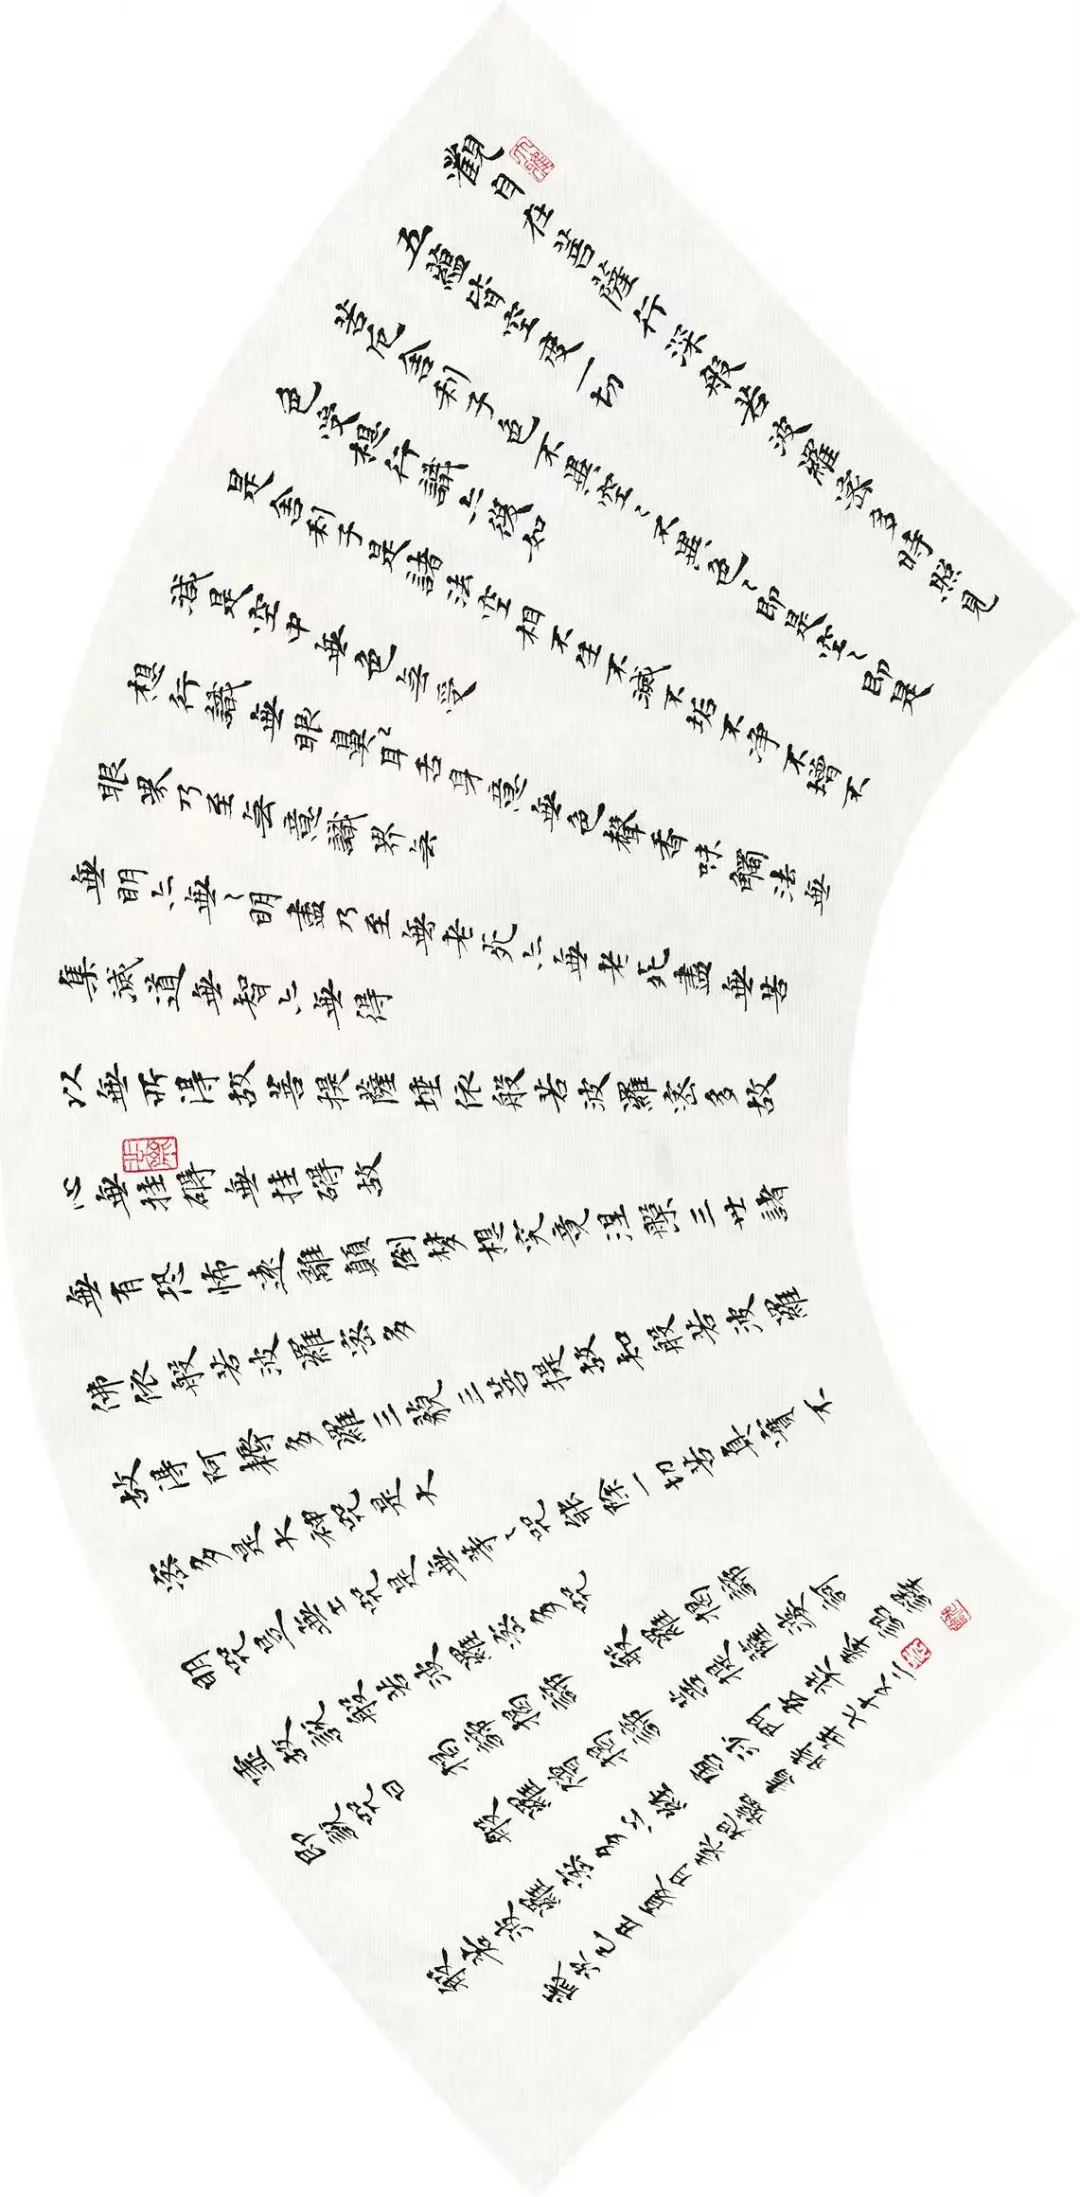 觀自在菩薩行深般若波羅蜜多時照見
五蘊皆空度一切
苦厄舍利子色不異空〻不異色〻即是空〻即是
色受想行識亦復如
是舍利子是諸法空相不生不滅不垢不净不增不
減是空中無色無受
想行識無眼鼻〻耳舌身意無色聲香味觸法無
眼界乃至無意識界無
無明亦無〻明盡乃至無老死亦無老死盡無苦
集滅道無智亦無得
以無所得故菩提薩埵依般若波羅蜜多故
心無挂礙無挂礙故
無有恐怖遠離顛倒夢想究竟涅槃三世諸
佛依般若波羅蜜多
故得阿耨多羅三藐三菩提故知般若波羅
蜜多是大神咒是大
明咒是無上咒是無等〻咒能除一切苦真實不
虛故說般若波羅蜜多咒
即說咒曰 揭諦揭諦 般羅揭諦
般羅僧揭諦 菩提薩婆訶
般若波羅蜜多心經 唐沙門玄奘奉詔譯
歲次己丑夏月 書 時年七十又二